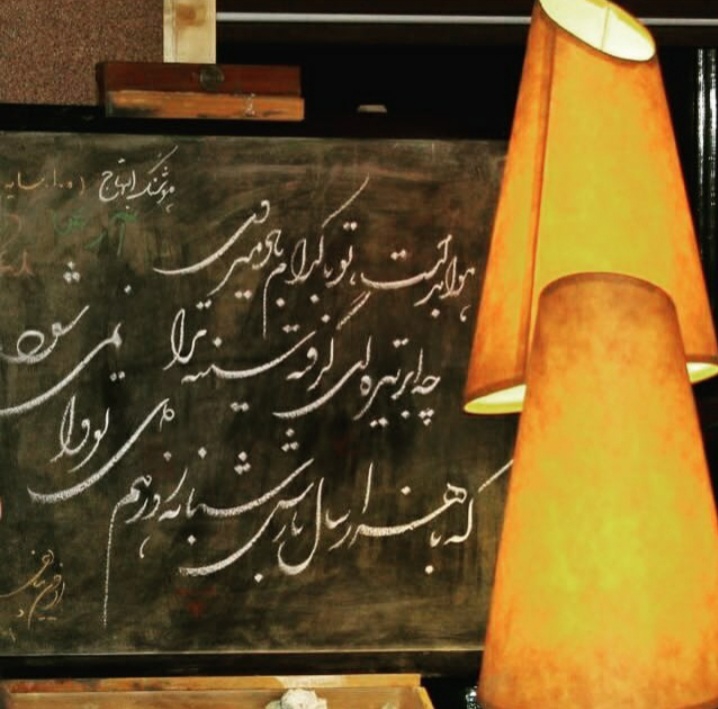 هوشنگ ابتهاج (ه.ا. سایه
هوا بد است، تو با کدام باد میروی
چه ابر تیره ای گرفته سینه ترا
که با هزار سال بارش شبانه روز هم
دل تو وا نمی شود